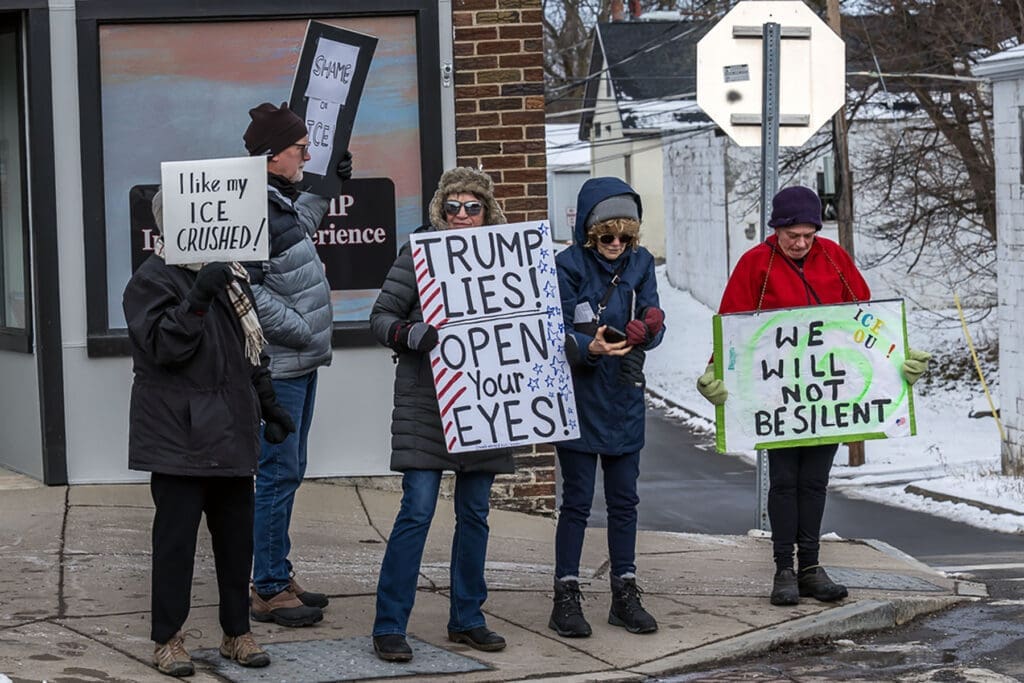 SHAME
ON
ICE
I like my
ICE
CRUSHED!
TRUMP
LIES!
OPEN
Your
EYES!
ICE
OU !
WE
WILL
NOT
BE SILENT